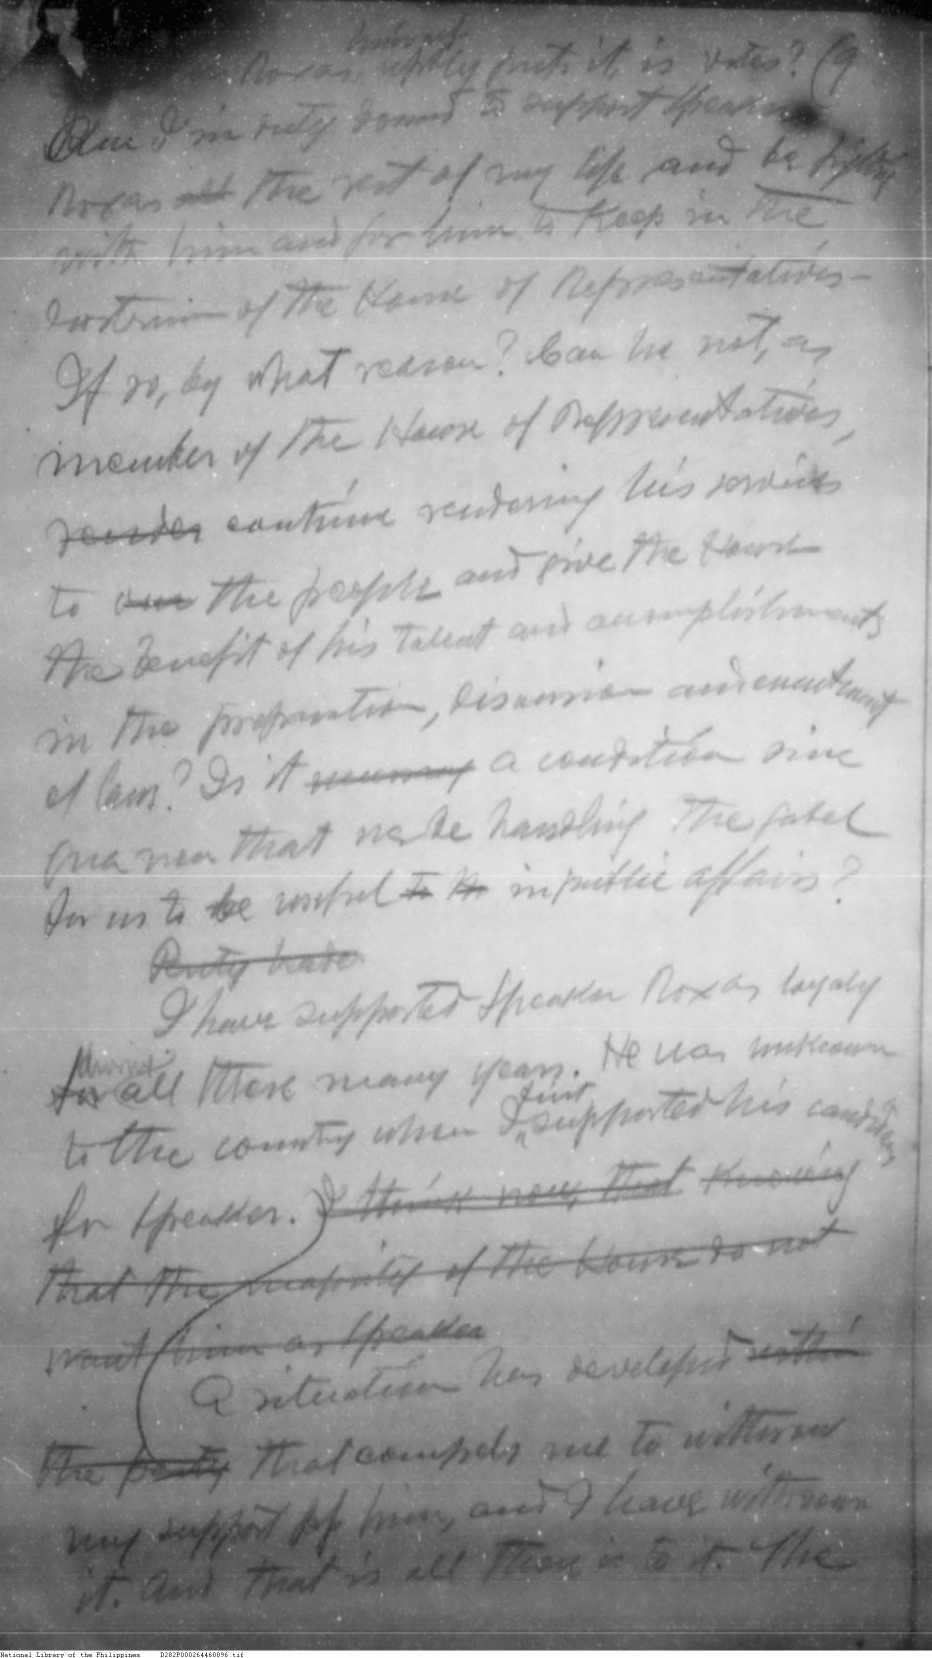 himself
Roxas, aptly puts it, is votes? (9
Am I in duty bound to support Speaker
Roxas all the rest of my life and be fighting
with him and for him to keep in the
rostrum of the House of Representatives–
If so, by what reason? Can he not, as
member of the House of Representatives,
render continue rendering his services
to our the people and give the House
the benefit of his talent and accomplishments
in the preparation, discussion and enactment
of laws? Is it necessary a condition sine
qua non that we be handling the gabel
for us to be useful to the in public affairs?
Party leader
I have supported Speaker Roxas loyaly
during
for all these many years. He was unknown
first
to the country when I supported his candidacy
for Speaker. I think now, that knowing
that the majority of the House do not
want him as Speaker
A situation has developed within
the party that compels me to withdraw
my support of him, and I have withdrawn
it. And that is all there is to it. The
National Library of the Philippines D282P000264460096.tif